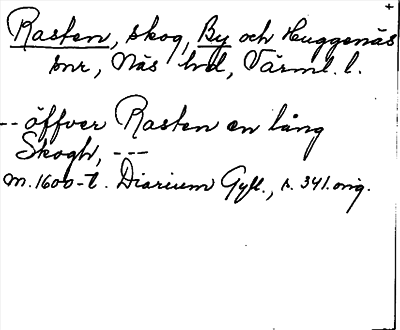 Rasten, skog, By och Huggenäs
snr, Näs hd, Värml. l.
-- öffver Rasten en lång
Skogh, ---
m. 1600-t. Diarium Gyll., s. 341. orig.